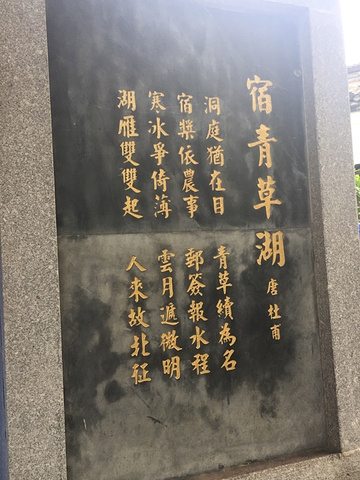 宿青草湖
唐 杜甫
洞庭猶在目
青草續為名
宿槳依農事
郵簽報水程
寒冰爭倚薄
雲月遞微明
湖雁雙雙起
人來故北征